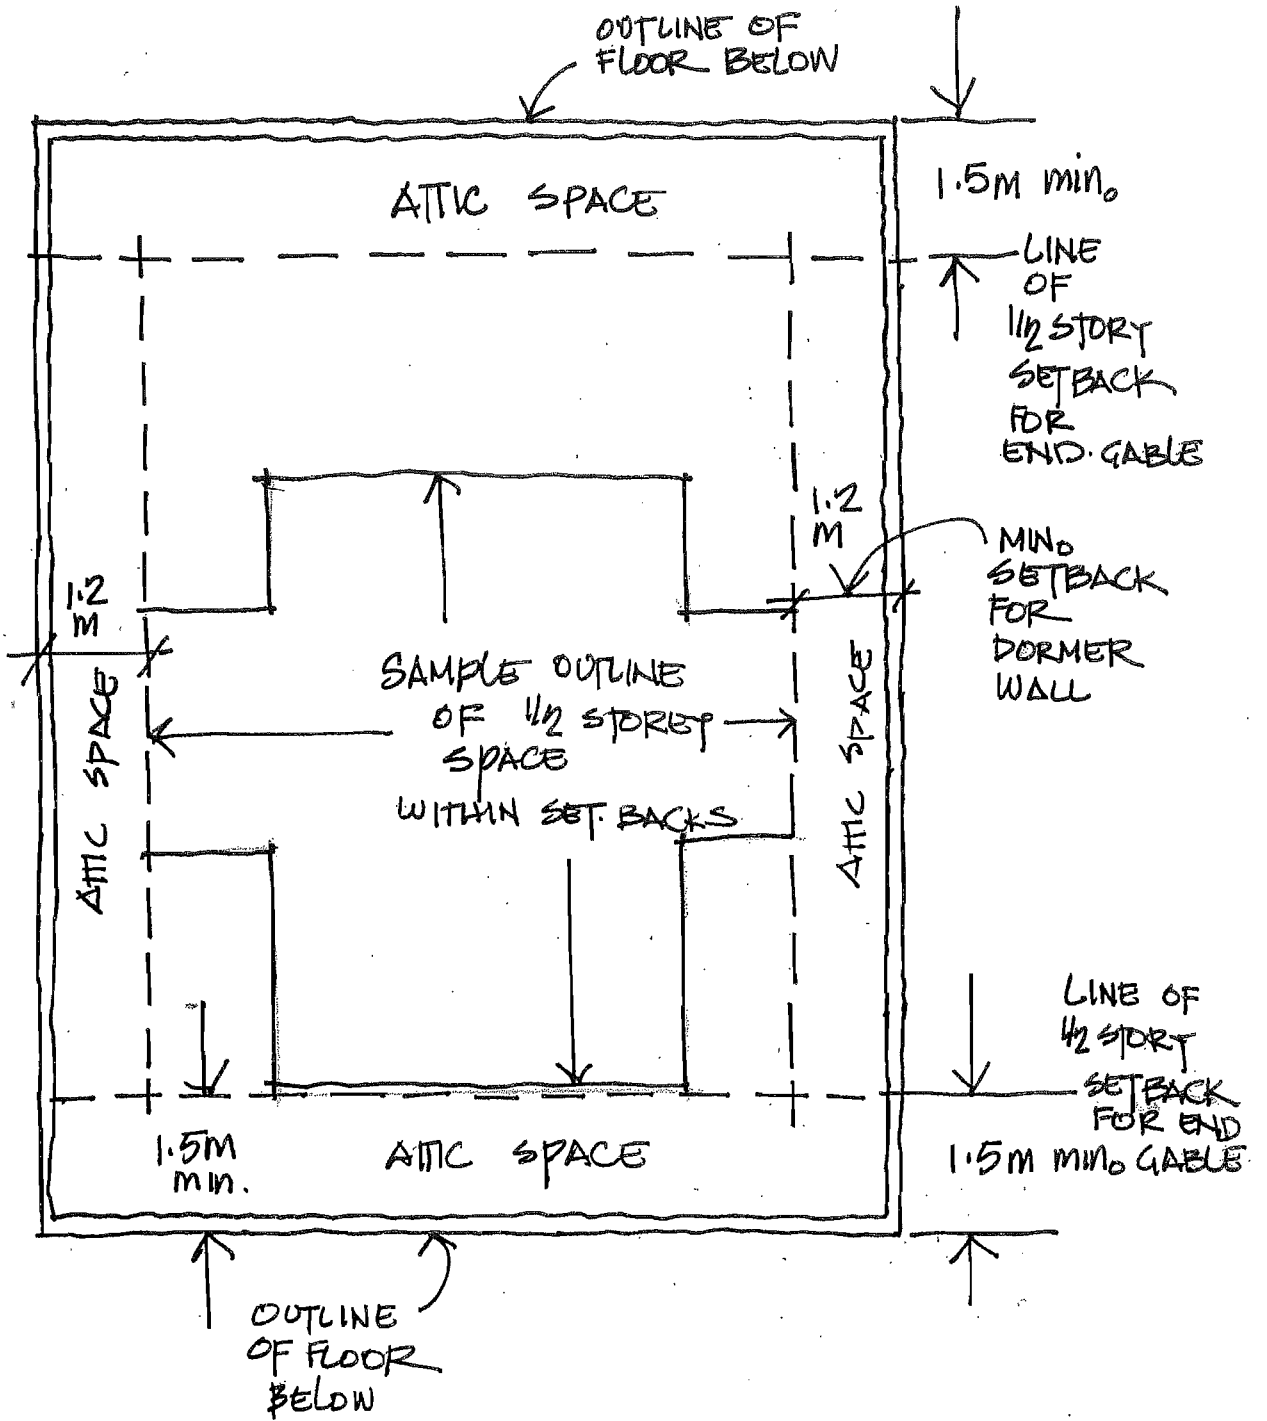 OUTLINE OF
FLOOR BELOW
ATTIC SPACE
1.5M min.
LINE
OF
1/2 STORY
SETBACK
FOR
END. GABLE
1.2
M
MIN.
SETBACK
FOR
DORMER
WALL
1.2
M
ATTIC SPACE
SAMPLE OUTLINE
OF 1/2 STOREY
SPACE
WITHIN SET. BACKS
ATTIC SPACE
LINE OF
1/2 STORY
SETBACK
FOR END
1.5M min. GABLE
1.5M
min.
ATTIC SPACE
OUTLINE
OF FLOOR
BELOW